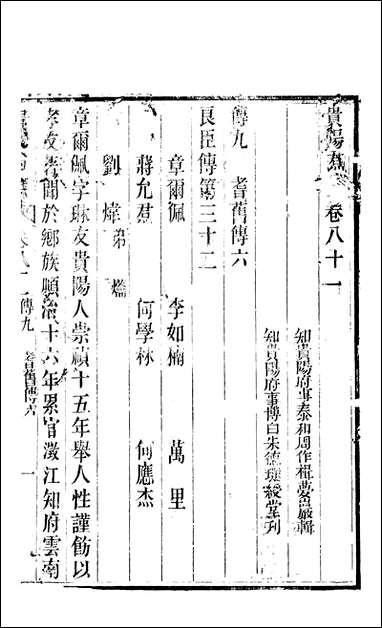 貴陽 卷八十一
知貴陽府事泰和周作楫夢巖輯
知貴陽府事博白朱德璲綬堂刋
傳九 耆舊傳六
良臣傳第三十二
章爾佩 李如楠 萬里
蔣允焄 何學林 何應杰
劉煒 弟
章爾佩字琢友貴陽人崇禎十五年舉人性謹飭以
孝友著聞於鄉族順治十六年累官澂江知府雲南
傳九 耆舊傳六 一